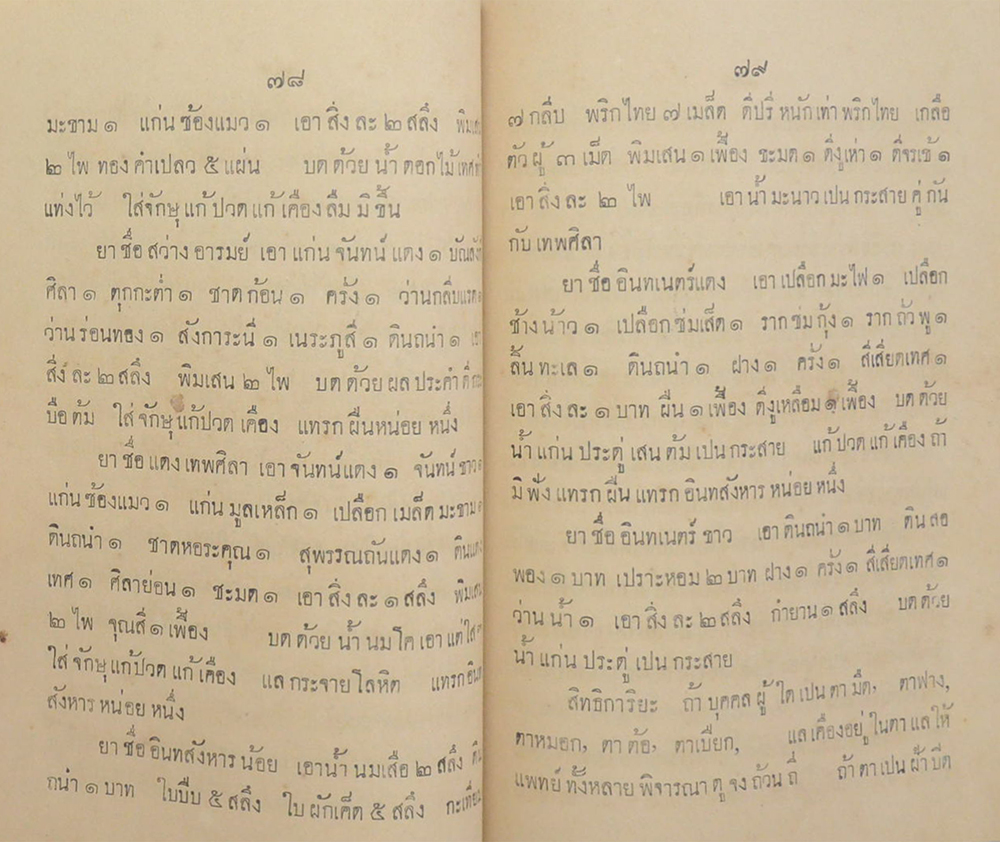 ๗๘
มะขาม ๑ แก่น ช้องแมว ๑ เอา สิ่ง ละ ๒ สลึง พิมเสน
๒ ไพ ทอง คำเปลว ๕ แผ่น บด ด้วย น้ำ ดอกไม้ เทศ ทำ
แท่งไว้ ใส่จักษุ แก้ ปวด แก้ เคือง ลืม มิ ขึ้น
ยา ชื่อ สว่าง อารมย์ เอา แก่น จันทน์ แดง ๑
ศิลา ๑ ตุกกะต่ำ ๑ ชาด ก้อน ๑ ครั่ง ๑ ว่านกลีบแรด ๑
ว่าน ร่อนทอง ๑ สังการะนี่ ๑ เนระภูสี่ ๑ ดินถนำ ๑ เอา
สิ่ง ละ ๒ สลึง พิมเสน ๒ ไพ บด ด้วย ผล ประคำ ดี กระ
บือ ต้ม ใส่ จักษุ แก้ปวด เคือง แทรก ฝิ่นหน่อย หนึ่ง
ยา ชื่อ แดง เทพศิลา เอา จันทน์ แดง ๑ จันทน์ ขาว ๑
แก่น ช้องแมว ๑ แก่น มูลเหล็ก ๑ เปลือก เมล็ด มะขาม ๑
ดินถนำ ๑ ชาดหอระคุณ ๑ สุพรรณถันแดง ๑ ดินแดง
เทศ ๑ ศิลาย่อน ๑ ชะมด ๑ เอา สิ่ง ละ ๑ สลึง พิมเสน
๒ ไพ จุณสี ๑ เฟื้อง บด ด้วย น้ำ นม โค เอา แต่ ใส
ใส่ จักษุ แก้ปวด แก้ เคือง แล กระจาย โลหิต แทรก อินท
สังหาร หน่อย หนึ่ง
ยา ชื่อ อินทสังหาร น้อย เอาน้ำ นมเสือ ๒ สลึง ดิน
ถนำ ๑ บาท ใบบืบ ๕ สลึง ใบ ผักเค็ด ๕ สลึง กะเทียม
๗๙
๗ กลีบ พริกไทย ๗ เมล็ด ดีปรี หนัก เท่า พริกไทย เกลือ
ตัว ผู้ ๓ เม็ด พิมเสน ๑ เฟื้อง ชะมด ๑ ดีงูเห่า ๑ ดีจรเข้ ๑
เอา สิ่ง ละ ๒ ไพ เอา น้ำ มะนาว เปน กระสาย คู่ กัน
กับ เทพศิลา
ยา ชื่อ อินทเนตร์แดง เอา เปลือก มะไฟ ๑ เปลือก
ช้าง น้าว ๑ เปลือก ซ่มเส็ด ๑ ราก ซ่ม กุ้ง ๑ ราก ถั่ว พู ๑
ลิ้น ทะเล ๑ ดินถนำ ๑ ฝาง ๑ ครั่ง ๑ สีเสียดเทศ ๑
เอา สิ่ง ละ ๑ บาท ฝิ่น ๑ เฟื้อง ดีงูเหลือม ๑ เฟื้อง บด ด้วย
น้ำ แก่น ประดู่ เสน ต้ม เปน กระสาย แก้ ปวด แก้ เคือง ถ้า
มิ ฟัง แทรก ฝิ่น แทรก อินทสังหาร หน่อย หนึ่ง
ยา ชื่อ อินทเนตร์ ขาว เอา ดินถนำ ๑ บาท ดิน สอ
พอง ๑ บาท เปราะหอม ๒ บาท ฝาง ๑ ครั่ง ๑ สีเสียดเทศ ๑
ว่าน น้ำ ๑ เอา สิ่ง ละ ๒ สลึง กำยาน ๑ สลึง บด ด้วย
น้ำ แก่น ประดู่ เปน กระสาย
สิทธิการิยะ ถ้า บุคคล ผู้ ใด เปน ตา มืด, ตาฟาง,
ตาหมอก, ตา ต้อ, ตาเปียก, แล เคืองอยู่ ในตา แล ให้
แพทย์ ทั้งหลาย พิจารณา ดู จง ถ้วน ถี่ ถ้า ตา เปน ฝ้า ปิด